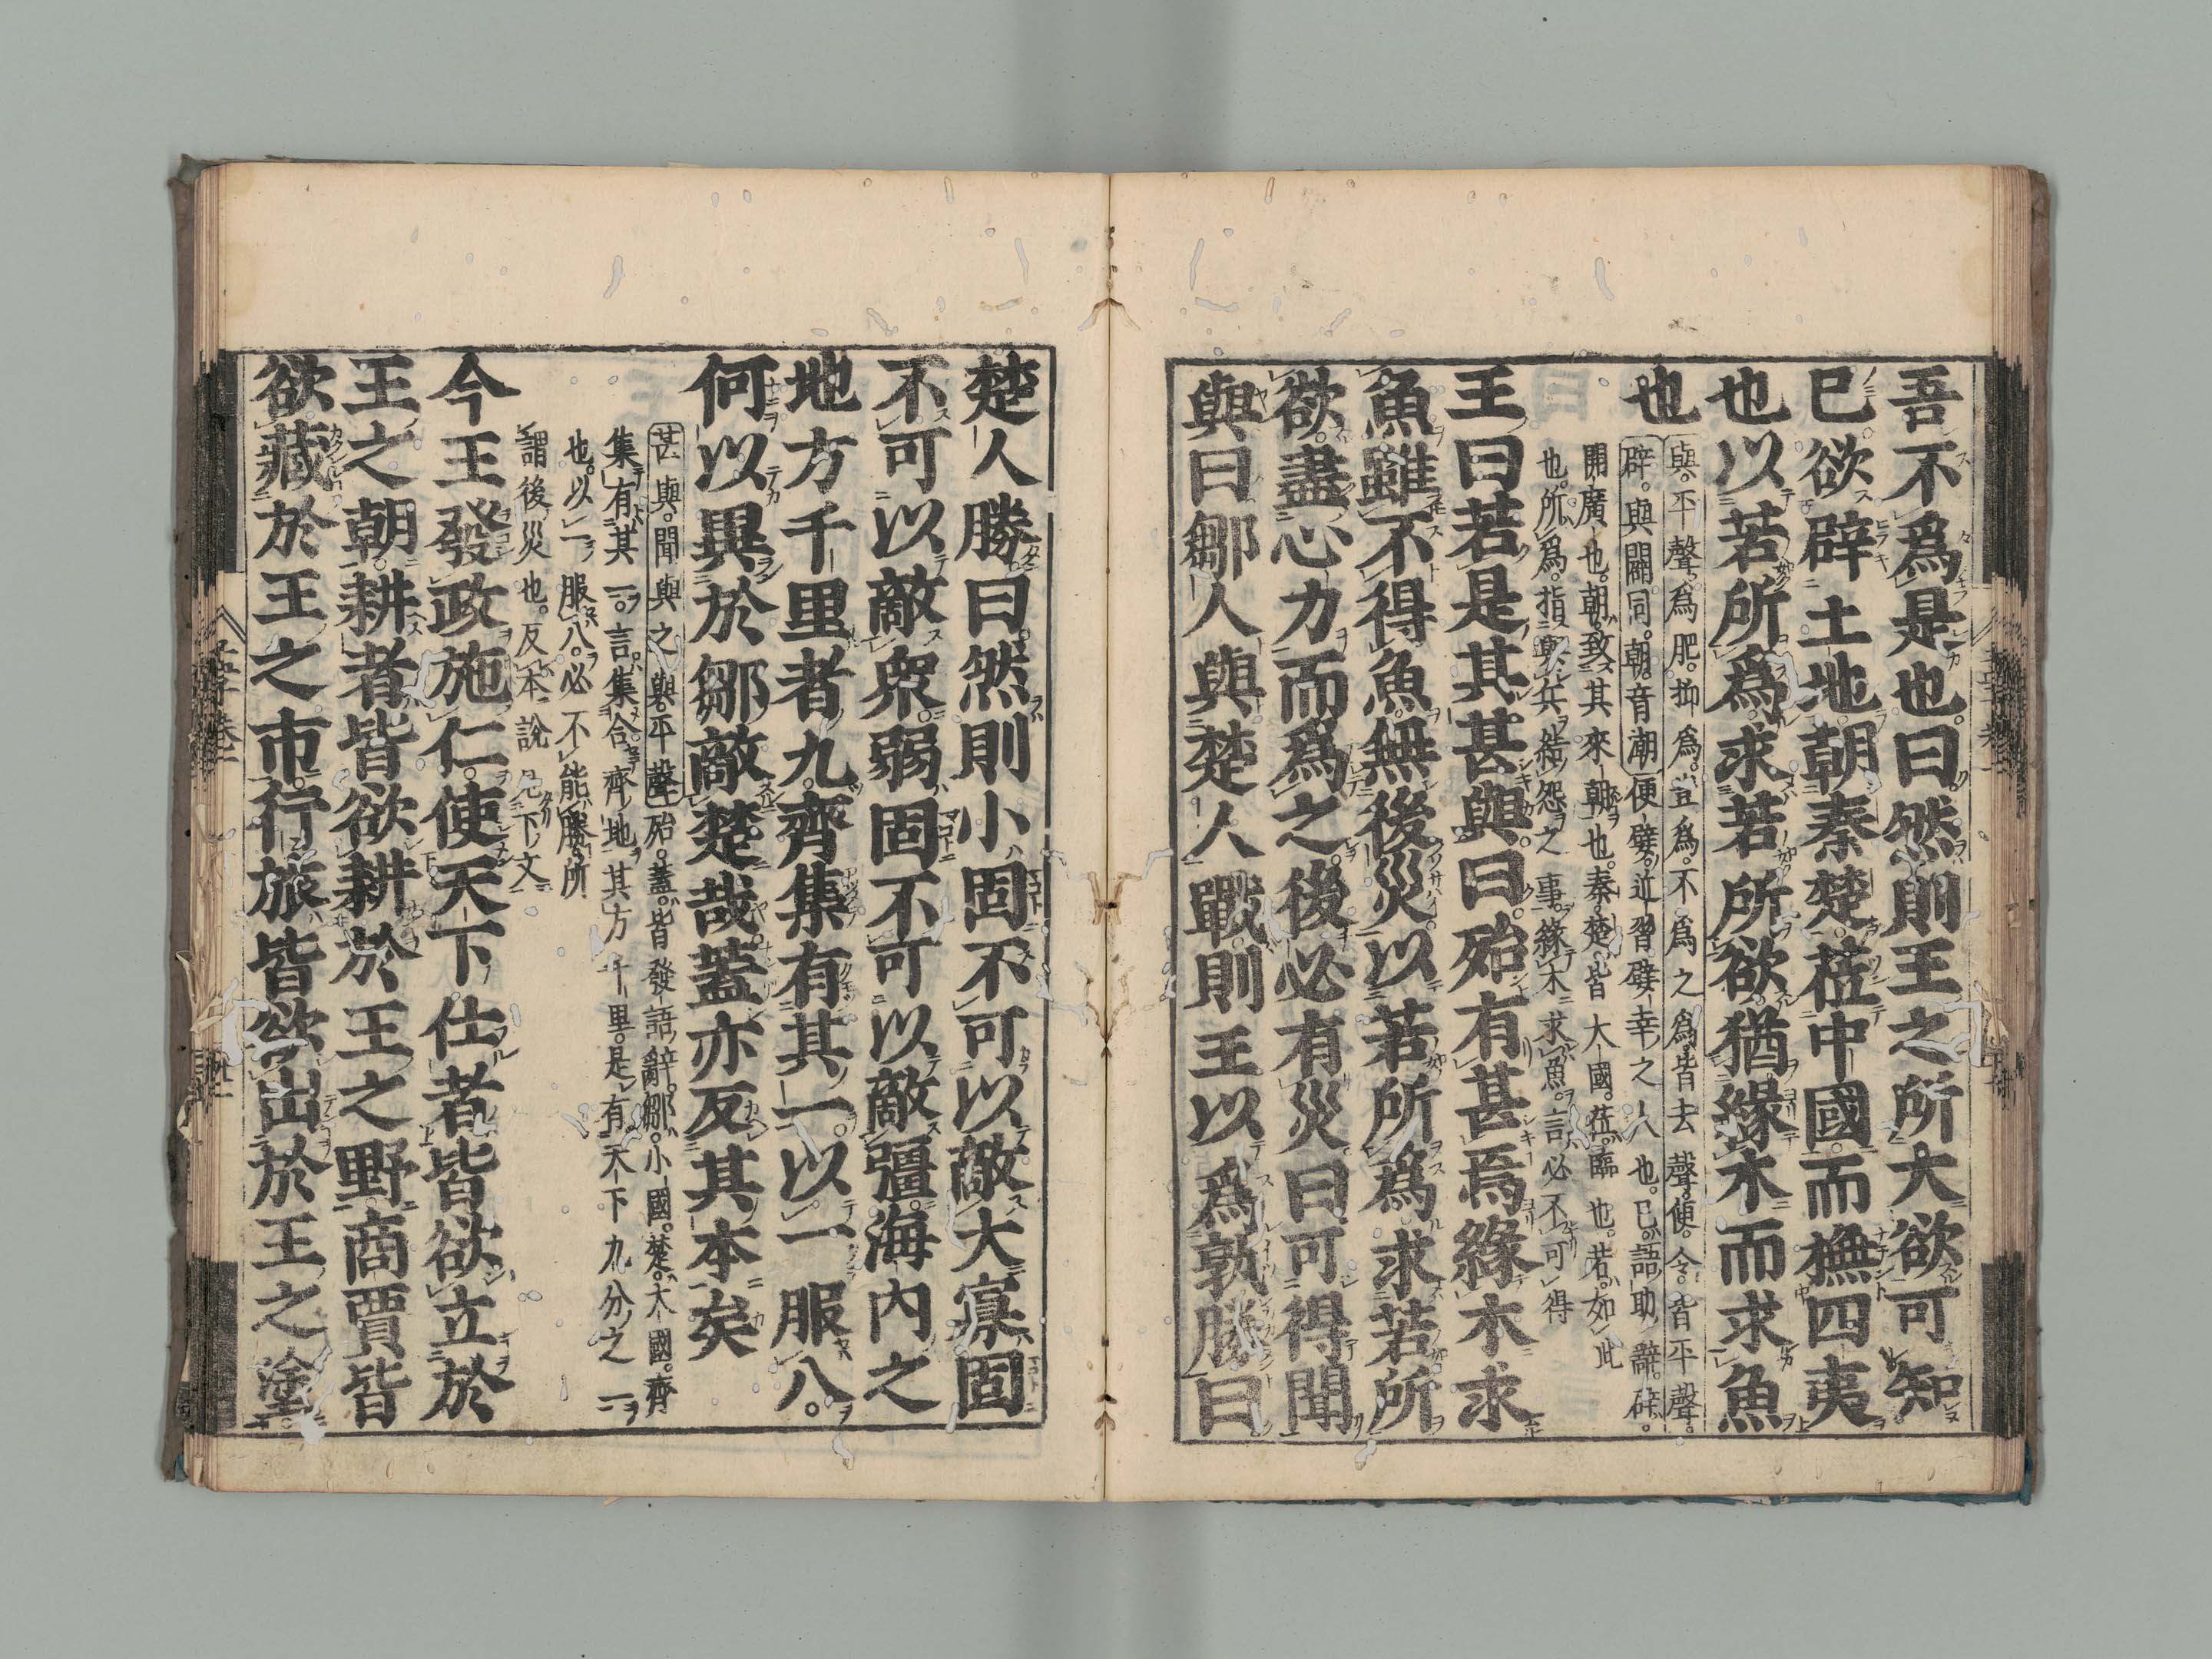 吾不爲是也。曰。然則王之所大欲可知
已。欲辟土地朝秦楚莅中國。而撫四夷
也以若所爲。求若所欲猶緣木而求魚
也
與。平聲。爲肥。抑爲。豈爲。不爲之爲。皆去聲。便。令。皆平聲。
辟。與闢同。朝。音潮。便嬖。近習嬖幸之人也。已。語助辭。辟。
開廣也。朝。致其來朝也。秦。楚。皆大國。莅。臨也。若。如此
也。所爲。指興兵結怨之事。緣木求魚。言必不可得
王曰若是其甚與。曰。殆有甚焉緣木求
魚雖不得魚。無後災。以若所爲求若所
欲。盡心力而爲之。後必有災。曰可得聞
與。曰鄒人與楚人戰。則王以爲孰勝。曰
楚人勝。曰。然則小固不可以敵大。寡固
不可以敵衆。弱固不可以敵彊。海内之
地方千里者九。齊集有其一。以一服八。
何以異於鄒敵楚哉。蓋亦反其本矣
甚與。聞與之與。平聲。殆。蓋。皆發語辭。鄒。小國。楚。大國。齊
集有其一。言集合齊地其方千里。是有天下九分之一
也。以一服八。必不能勝。所
謂後災也。反本說見下文
今王發政施仁。使天下仕者皆欲立於
王之朝。耕者皆欲耕於王之野商賈皆
欲藏於王之市行旅皆欲出於王之塗。